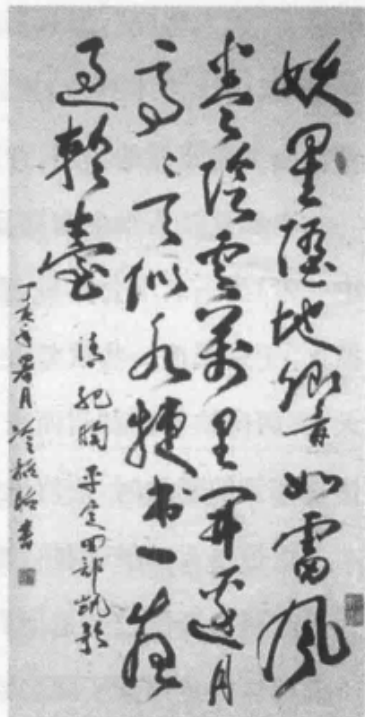 妖星墮地響如雷風
卷陰雲萬里開邊月
高〻天似水捷書一夜
過輪臺
清 紀昀 平定回部凱歌
丁亥年暑月冷書